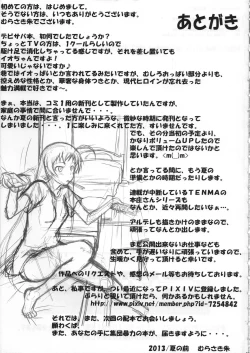 あとがき
初めての方は、はじめまして、
そうでない方は、いつもありがとうございます。
むらさき朱でございます。
テビサバ本、初めてでしたでしょうか？
ちょっとＴＶの方は、１クールらしいので
駆け足で消化しちゃってる感じですが、それを差し置いても
イオちゃんですよ！
可愛いじゃないですか♪
巷ではイオっぱいとか言われてるみたいですが、むしろおっぱい部分よりも、
控えめな性格とか、華奢な身体つきとか、現代ヒロインが忘れ去った
魅力満載で好きです～。
まぁ、本当は、コミ１用の新刊として製作していたんですが、
家庭の事情で間に合いませんで・・・、
なんか夏の新刊と言った方がいいような、微妙な時期になっちゃ
いました・・・、１に楽しみに来てくれた方、すみませんです。
でも、その分当初の予定より、
かなりボリュームＵＰしたので
楽しんで頂けたのではないかと
思います。<m(__)m>
とか言ってる間に、もう夏の
準備とか始まってるんですが、
連載が中断しているＴＥＮＭＡの
本庄さんシリーズも
なんとか、近々再開したいなぁ…、
アルデレも描きかけのままなので、
頑張ってなんとか出します。
まだ公開出来ないお仕事なども
含めて、手が遅いなりに頑張っていますので、
生暖かく見守って頂けると幸いです。
作品へのリクエストや、感想のメール等もお待ちしております。
あと、私事ですが、つい最近になってＰＩＸＩＶに登録しました。
ぶらりと覗いて頂けたら、何かあるかもしれません。
http://www.pixiv.net/member.php?id=7254842
それでは、また、次回の紀本でお会いしましょう。
願わくば、
また、あなたの手に集団暴力の本が、届きますように・・・。
2013/夏の前　むらさき朱